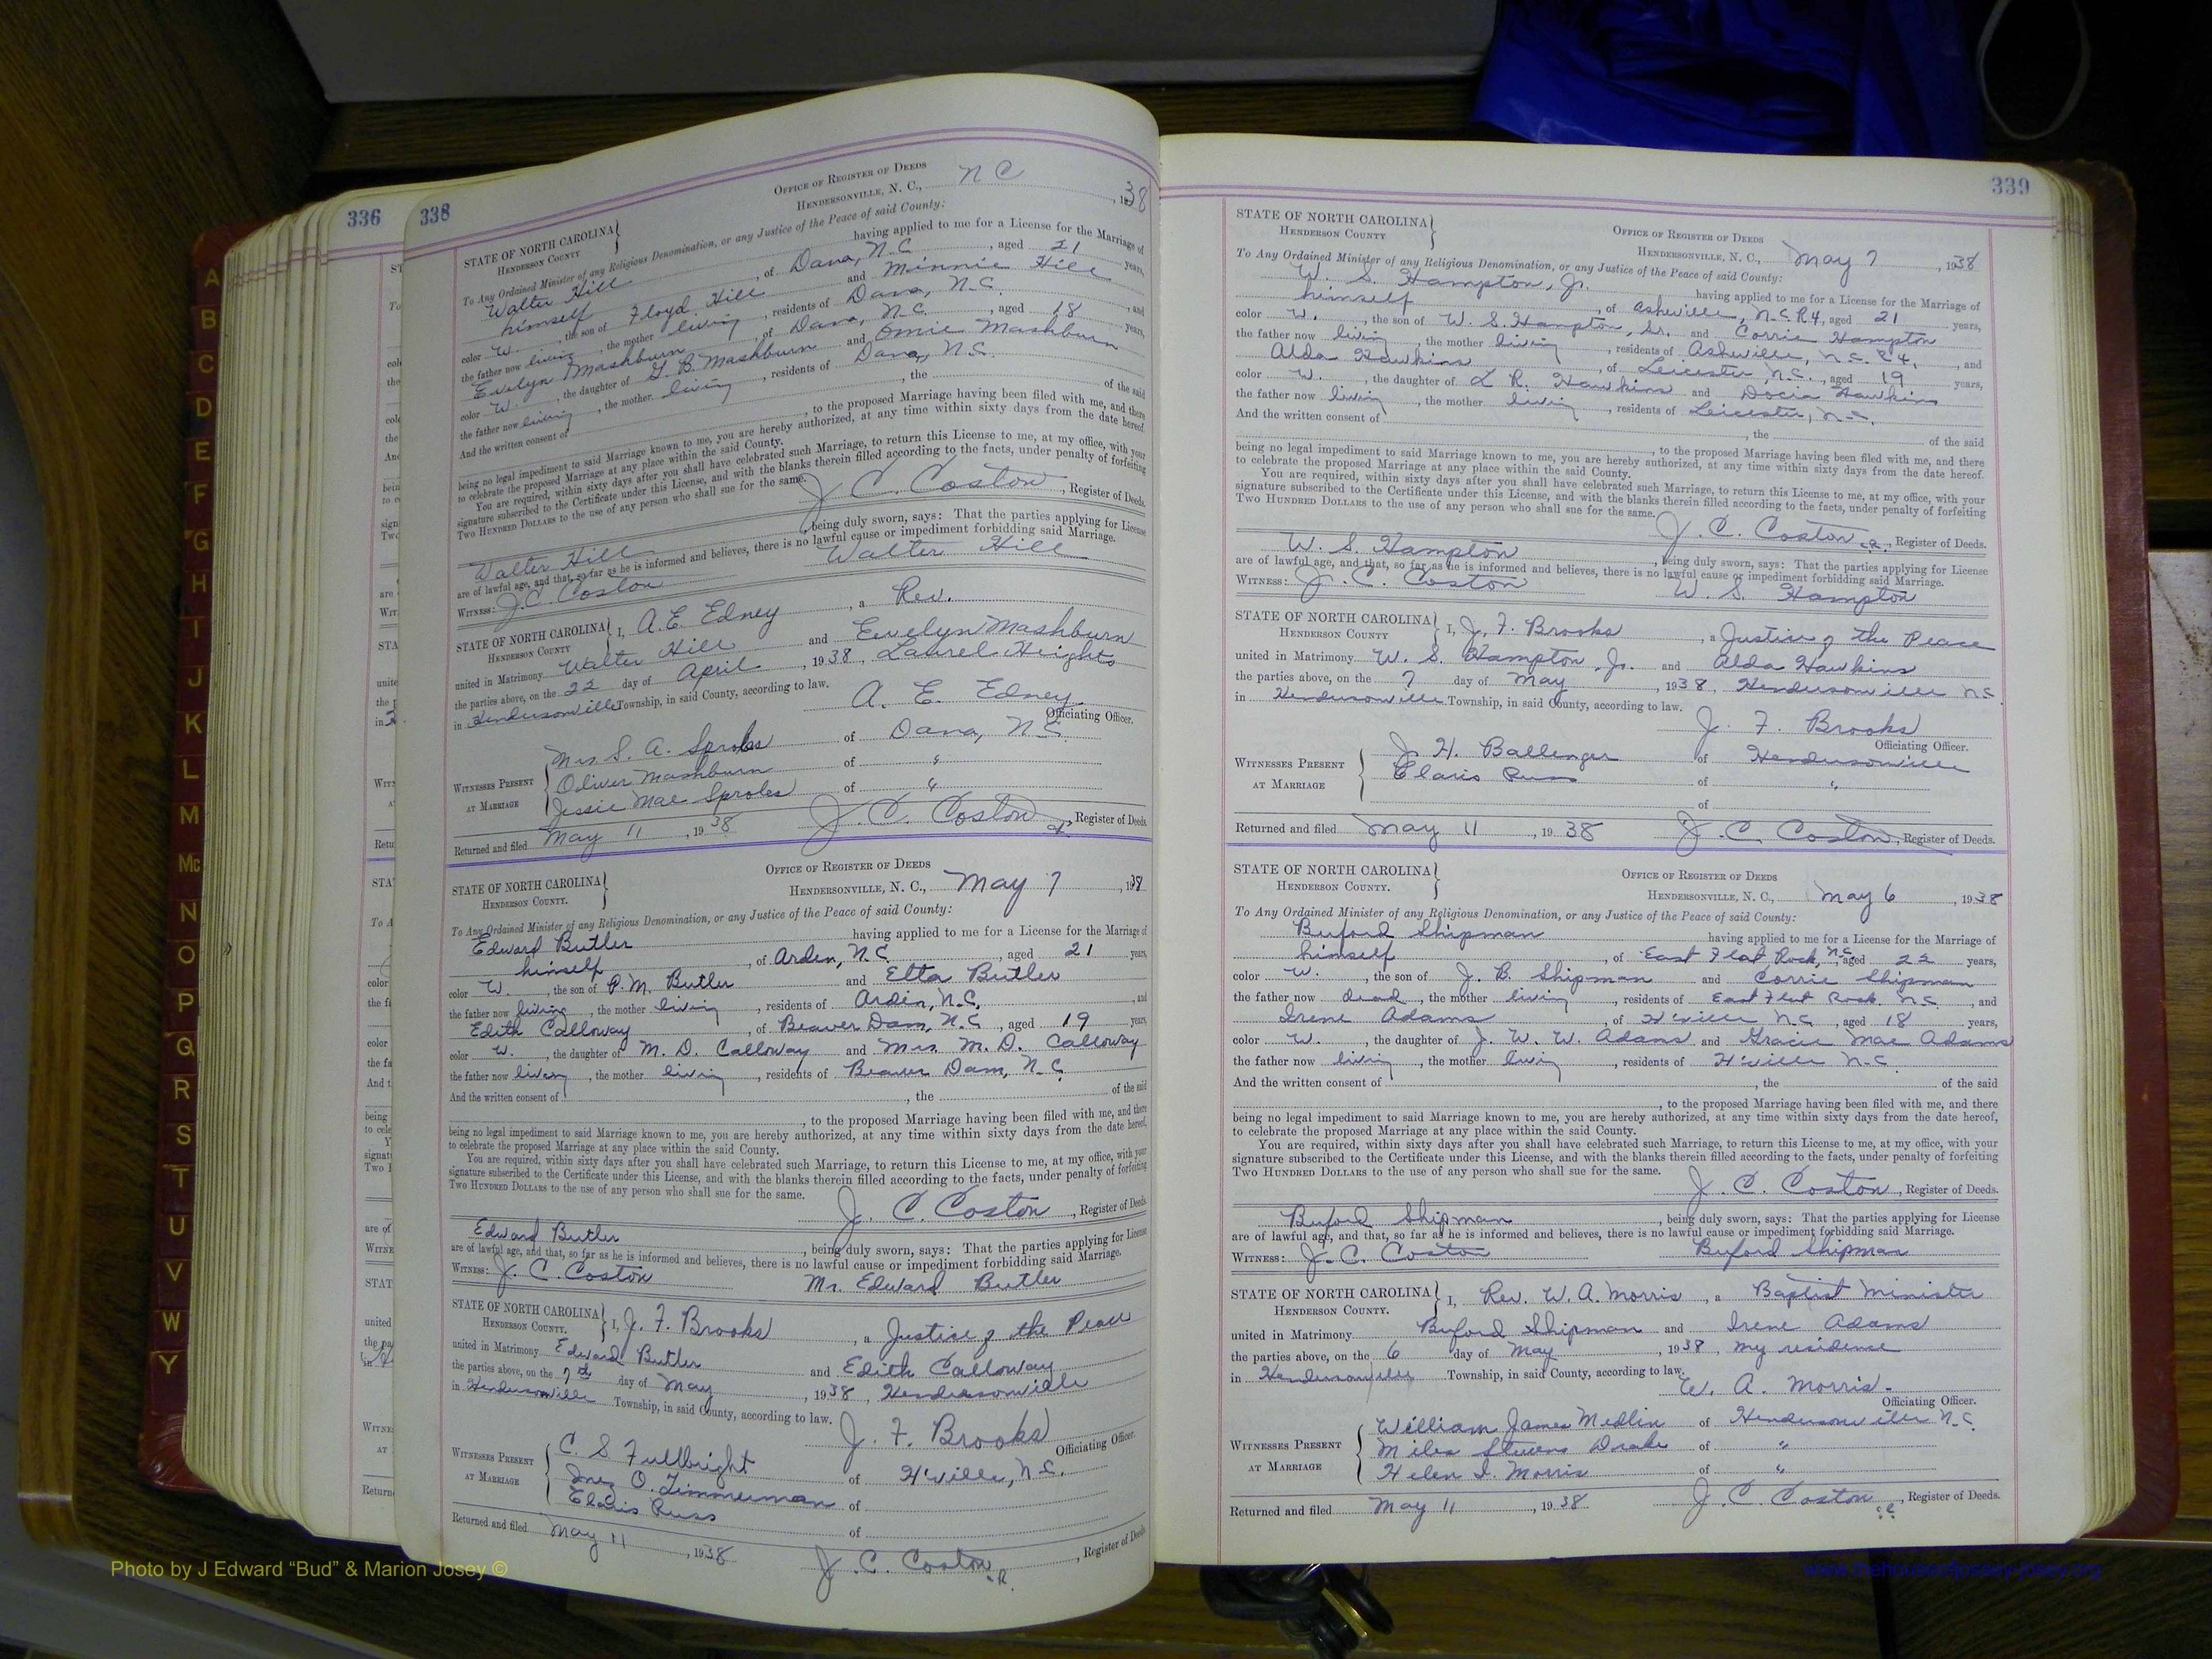 336
338
OFFICE OF REGISTER OF DEEDS
STATE OF NORTH CAROLINA HENDERSONVILLE, N. C., N C , 1938
HENDERSON COUNTY
To Any Ordained Minister of any Religious Denomination, or any Justice of the Peace of said County:
Walter Hill having applied to me for a License for the Marriage of
himself , of Dana, N.C , aged 21 years,
color W. , the son of Floyd Hill and Minnie Hill
the father now living , the mother living , residents of Dana, N.C. , and
Evelyn Mashburn , of Dana, N.C. , aged 18 years,
color W. , the daughter of G. B. Mashburn and Omie Mashburn
the father now living , the mother living , residents of Dana, N.C.
And the written consent of , the of the said
, to the proposed Marriage having been filed with me, and there
being no legal impediment to said Marriage known to me, you are hereby authorized, at any time within sixty days from the date hereof,
to celebrate the proposed Marriage at any place within the said County.
You are required, within sixty days after you shall have celebrated such Marriage, to return this License to me, at my office, with your
signature subscribed to the Certificate under this License, and with the blanks therein filled according to the facts, under penalty of forfeiting
TWO HUNDRED DOLLARS to the use of any person who shall sue for the same.
J. C. Coston , Register of Deeds.
Walter Hill , being duly sworn, says: That the parties applying for License
are of lawful age, and that, so far as he is informed and believes, there is no lawful cause or impediment forbidding said Marriage.
WITNESS: J. C. Coston Walter Hill
STATE OF NORTH CAROLINA I, A. E. Edney , a Rev.
HENDERSON COUNTY
united in Matrimony Walter Hill and Evelyn Mashburn
the parties above, on the 22 day of April , 1938, Laurel Heights
in Hendersonville Township, in said County, according to law.
A. E. Edney
Officiating Officer.
WITNESSES PRESENT AT MARRIAGE
Mrs. S. A. Sproles of Dana, N.C.
Oliver Mashburn of "
Jessie Mae Sproles of "
Returned and filed May 11 , 1938 J. C. Coston , Register of Deeds.
OFFICE OF REGISTER OF DEEDS
STATE OF NORTH CAROLINA HENDERSONVILLE, N. C., May 7 , 1938
HENDERSON COUNTY.
To Any Ordained Minister of any Religious Denomination, or any Justice of the Peace of said County:
Edward Butler having applied to me for a License for the Marriage of
himself , of Arden, N.C. , aged 21 years,
color W. , the son of P. M. Butler and Etta Butler
the father now living , the mother living , residents of Arden, N.C. , and
Edith Calloway , of Beaver Dam, N.C , aged 19 years,
color W. , the daughter of M. D. Calloway and Mrs. M. D. Calloway
the father now living , the mother living , residents of Beaver Dam, N.C.
And the written consent of , the of the said
, to the proposed Marriage having been filed with me, and there
being no legal impediment to said Marriage known to me, you are hereby authorized, at any time within sixty days from the date hereof,
to celebrate the proposed Marriage at any place within the said County.
You are required, within sixty days after you shall have celebrated such Marriage, to return this License to me, at my office, with your
signature subscribed to the Certificate under this License, and with the blanks therein filled according to the facts, under penalty of forfeiting
TWO HUNDRED DOLLARS to the use of any person who shall sue for the same.
J. C. Coston , Register of Deeds.
Edward Butler , being duly sworn, says: That the parties applying for License
are of lawful age, and that, so far as he is informed and believes, there is no lawful cause or impediment forbidding said Marriage.
WITNESS: J. C. Coston Mr. Edward Butler
STATE OF NORTH CAROLINA I, J. F. Brooks , a Justice of the Peace
HENDERSON COUNTY.
united in Matrimony Edward Butler and Edith Calloway
the parties above, on the 7th day of May , 1938, Hendersonville
in Hendersonville Township, in said County, according to law.
J. F. Brooks
Officiating Officer.
WITNESSES PRESENT AT MARRIAGE
C. S. Fullbright of H'ville, N.C.
O. Timmerman of
Claris Russ of
Returned and filed May 11 , 1938 J. C. Coston , Register of Deeds
339
STATE OF NORTH CAROLINA OFFICE OF REGISTER OF DEEDS
HENDERSON COUNTY HENDERSONVILLE, N. C., May 7 , 1938
To Any Ordained Minister of any Religious Denomination, or any Justice of the Peace of said County:
W. S. Hampton, Jr. having applied to me for a License for the Marriage of
himself , of Asheville, N.C. R4, aged 21 years,
color W. , the son of W. S. Hampton, Sr. and Corrie Hampton
the father now living , the mother living , residents of Asheville, N.C. R4. , and
Alda Hawkins , of Leicester, N.C. , aged 19 years,
color W. , the daughter of L. R. Hawkins and Docia Hawkins
the father now living , the mother living , residents of Leicester, N.C.
And the written consent of , the of the said
, to the proposed Marriage having been filed with me, and there
being no legal impediment to said Marriage known to me, you are hereby authorized, at any time within sixty days from the date hereof.
to celebrate the proposed Marriage at any place within the said County.
You are required, within sixty days after you shall have celebrated such Marriage, to return this License to me, at my office, with your
signature subscribed to the Certificate under this License, and with the blanks therein filled according to the facts, under penalty of forfeiting
TWO HUNDRED DOLLARS to the use of any person who shall sue for the same.
J. C. Coston , Register of Deeds.
W. S. Hampton , being duly sworn, says: That the parties applying for License
are of lawful age, and that, so far as he is informed and believes, there is no lawful cause or impediment forbidding said Marriage.
WITNESS: J. C. Coston W. S. Hampton
STATE OF NORTH CAROLINA I, J. F. Brooks , a Justice of the Peace
HENDERSON COUNTY
united in Matrimony W. S. Hampton, Jr. and Alda Hawkins
the parties above, on the 7 day of May , 1938, Hendersonville N.C
in Hendersonville Township, in said County, according to law.
J. F. Brooks
Officiating Officer.
WITNESSES PRESENT AT MARRIAGE
J. H. Ballenger of Hendersonville
Claris Russ of "
of
Returned and filed May 11 , 1938 J. C. Coston, Register of Deeds.
STATE OF NORTH CAROLINA OFFICE OF REGISTER OF DEEDS
HENDERSON COUNTY. HENDERSONVILLE, N. C., May 6 , 1938
To Any Ordained Minister of any Religious Denomination, or any Justice of the Peace of said County:
Buford Shipman having applied to me for a License for the Marriage of
himself , of East Flat Rock, N.C. aged 22 years,
color W. , the son of J. B. Shipman and Corrie Shipman
the father now dead , the mother living , residents of East Flat Rock, N.C. , and
Irene Adams , of H'ville N.C , aged 18 years,
color W. , the daughter of J. W. W. Adams and Gracie Mae Adams
the father now living , the mother living , residents of H'ville N.C
And the written consent of , the of the said
, to the proposed Marriage having been filed with me, and there
being no legal impediment to said Marriage known to me, you are hereby authorized, at any time within sixty days from the date hereof,
to celebrate the proposed Marriage at any place within the said County.
You are required, within sixty days after you shall have celebrated such Marriage, to return this License to me, at my office, with your
signature subscribed to the Certificate under this License, and with the blanks therein filled according to the facts, under penalty of forfeiting
TWO HUNDRED DOLLARS to the use of any person who shall sue for the same.
J. C. Coston , Register of Deeds.
Buford Shipman , being duly sworn, says: That the parties applying for License
are of lawful age, and that, so far as he is informed and believes, there is no lawful cause or impediment forbidding said Marriage.
WITNESS: J. C. Coston Buford Shipman
STATE OF NORTH CAROLINA I, Rev. W. A. Morris , a Baptist Minister
HENDERSON COUNTY.
united in Matrimony Buford Shipman and Irene Adams
the parties above, on the 6 day of May , 1938, my residence
in Hendersonville Township, in said County, according to law.
W. A. Morris.
Officiating Officer.
WITNESSES PRESENT AT MARRIAGE
William James Medlin of Hendersonville N.C
Miles Stevens Drake of "
Helen I. Morris of "
Returned and filed May 11 , 1938 J. C. Coston , Register of Deeds.
A
B
C
D
E
F
G
H
I
J
K
L
M
Mc
N
O
P
Q
R
S
T
U
V
W
Y
Photo by J Edward “Bud” & Marion Josey ©
www.thehouseofjossey-josey.org